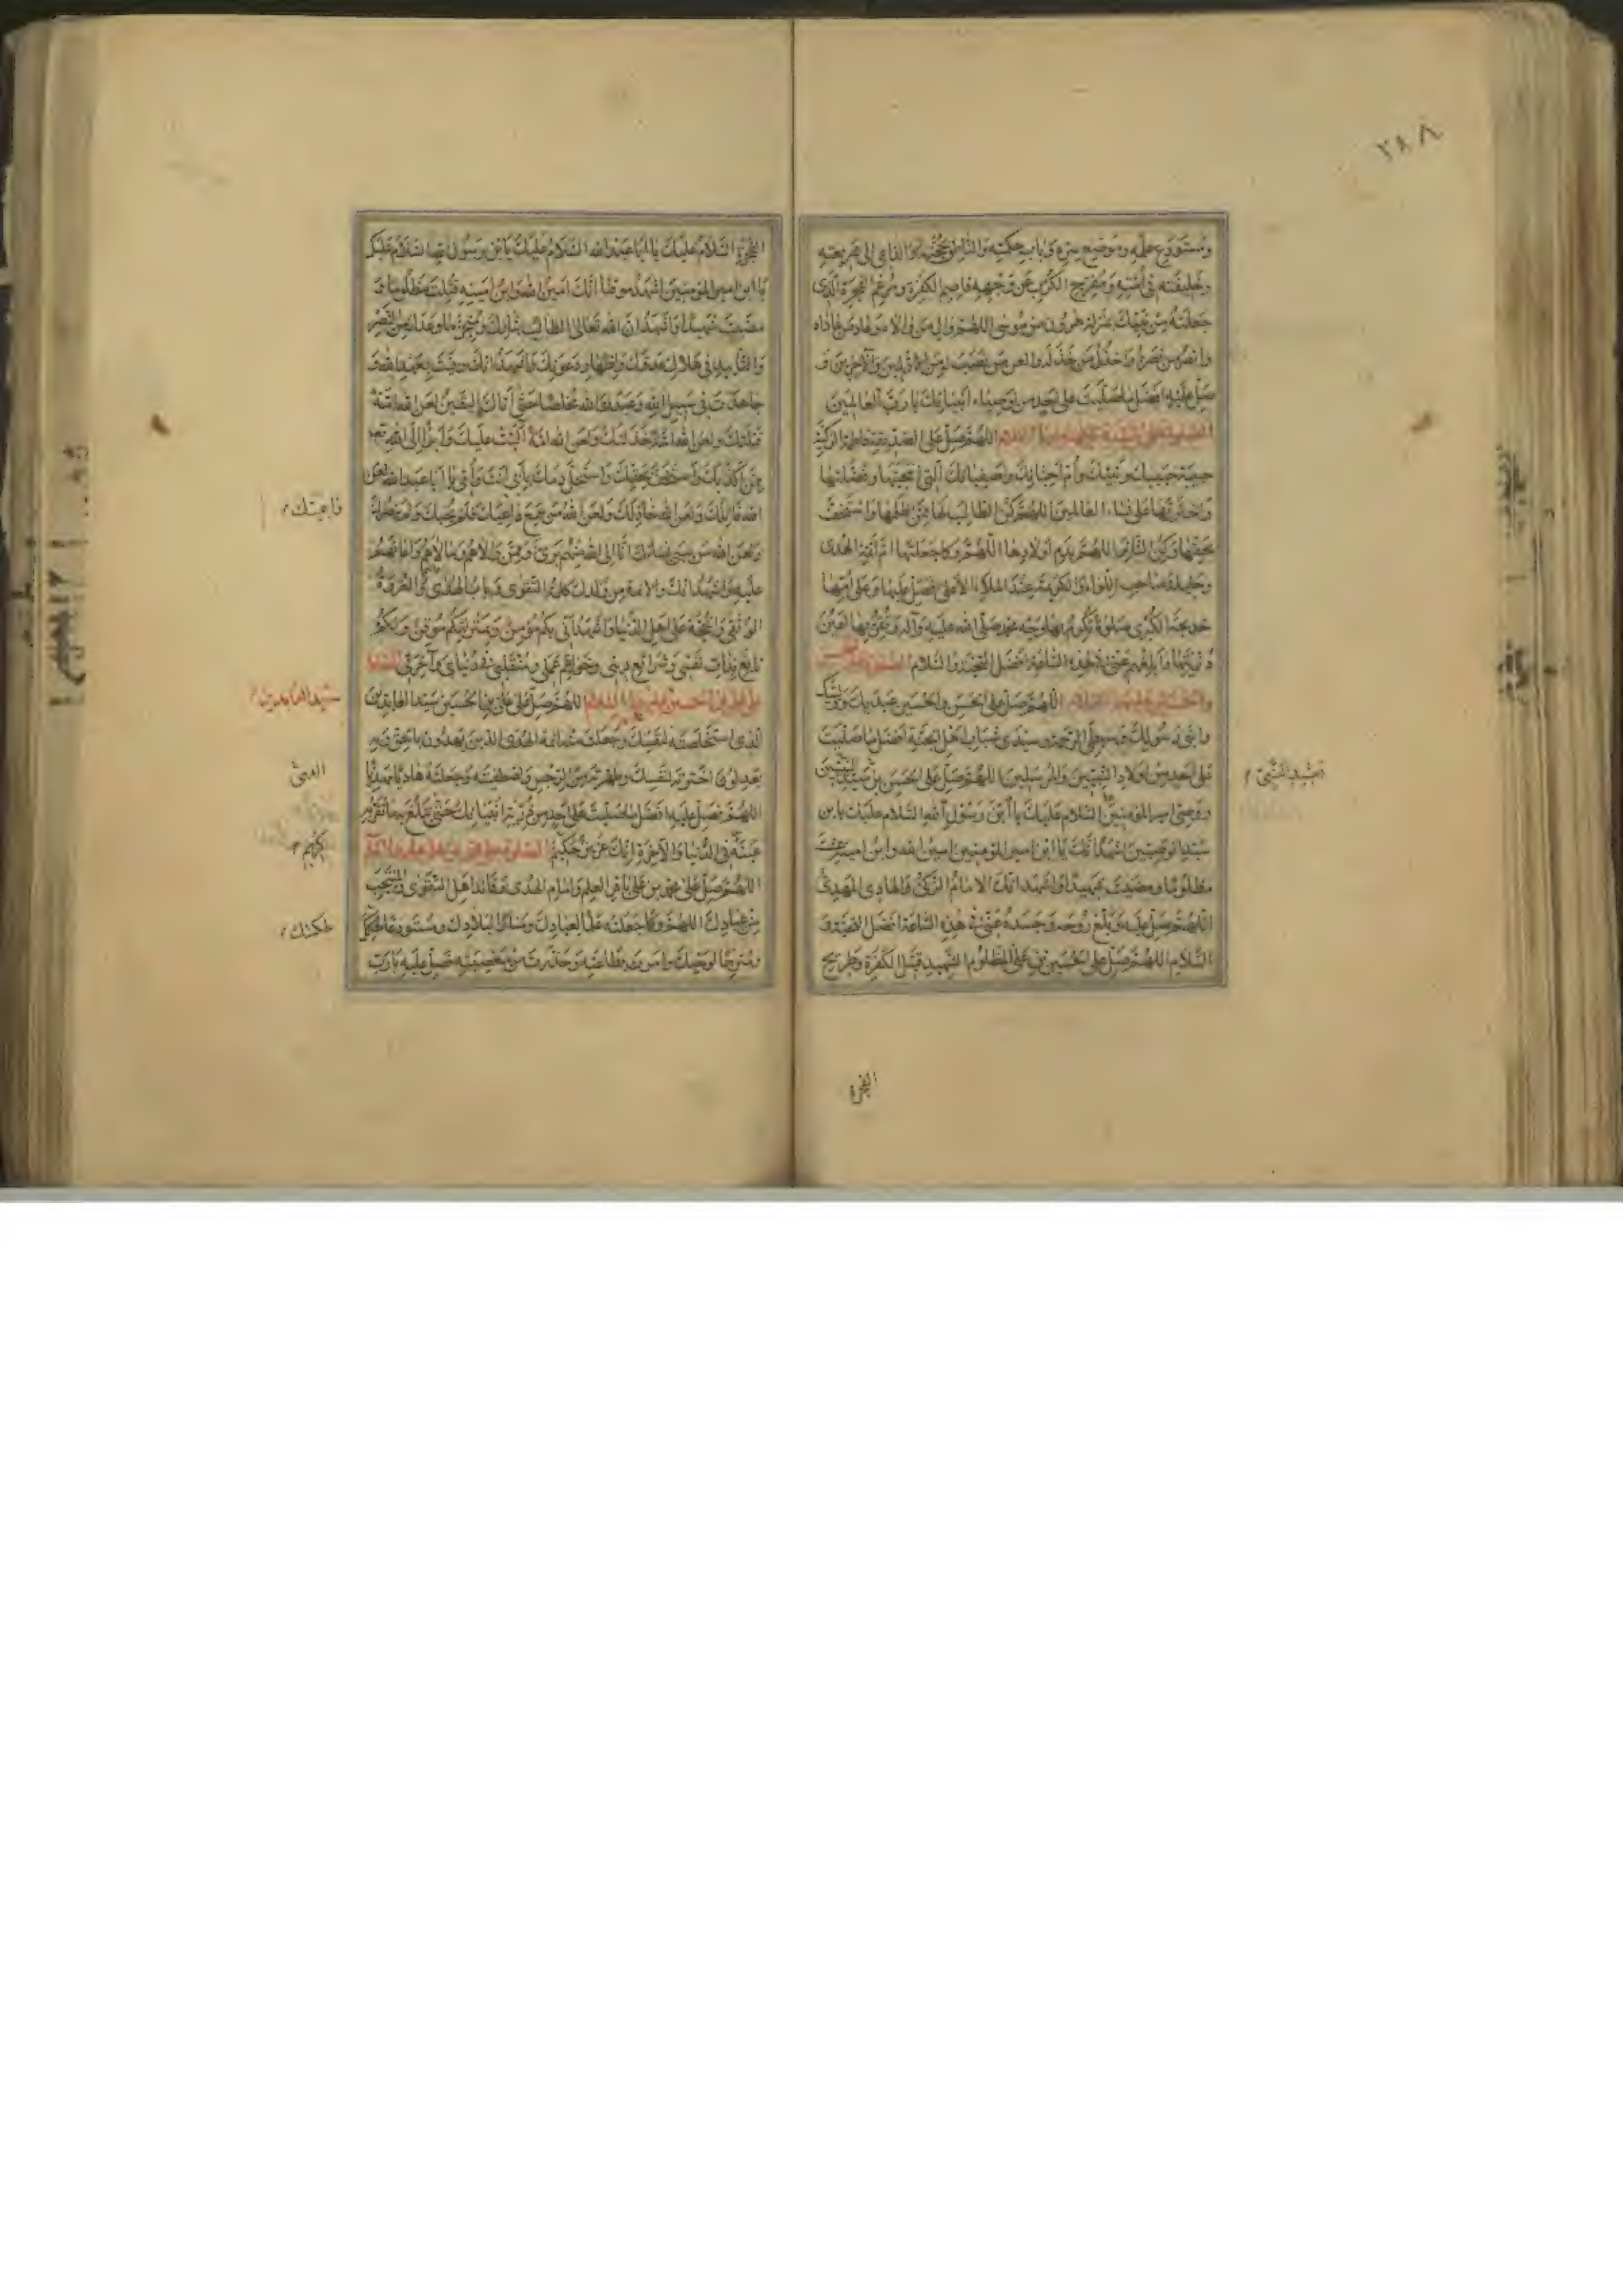 ٢٨٨
ومستودع علمه وموضع سره وباب حكمته والناطق بحجته والداعي الى شريعته
وخليفته في امته ومفرج الكرب عن وجهه قاصم الكفرة ومرغم الفجرة الذي
جعلته من نبيك بمنزلة هرون من موسى اللهم وال من والاه وعاد من عاداه
وانصر من نصره واخذل من خذله والعن من نصب له من الاولين والآخرين و
صل عليه افضل ما صليت على احد من اوصياء انبيائك يا رب العالمين
الصلوة على السيدة فاطمة عليها السلام اللهم صل على الصديقة فاطمة الزكية
حبيبة حبيبك ونبيك وام احبائك واصفيائك التي انتجبتها وفضلتها
واخترتها على نساء العالمين اللهم كن الطالب لها ممن ظلمها واستخف
بحقها وكن الثائر لها اللهم بدم اولادها اللهم وكما جعلتها ام ائمة الهدى
وحليلة صاحب اللواء والكريمة عند الملاء الاعلى فصل عليها وعلى امها
خديجة الكبرى صلوة تكرم بها وجه محمد صلى الله عليه وآله وتقر بها اعين
ذريتها وابلغهم عني في هذه الساعة افضل التحية والسلام الصلوة على الحسن
والحسين عليهما السلام اللهم صل على الحسن والحسين عبديك ووليك
وابني رسولك وسبطي الرحمة وسيدي شباب اهل الجنة افضل ما صليت
على احد من اولاد النبيين والمرسلين اللهم صل على الحسن بن سيد النبيين
ووصي امير المؤمنين السلام عليك يا ابن رسول الله السلام عليك يا بن
سيد الوصيين اشهد انك يا ابن امير المؤمنين امين الله وابن امينه عشت
مظلوما ومضيت شهيدا واشهد انك الامام الزكي الهادي المهدي
اللهم صل عليه وبلغ روحه وجسده عني في هذه الساعة افضل التحية و
السلام اللهم صل على الحسين بن علي المظلوم الشهيد قتيل الكفرة وطريح
الفجرة
الفجرة السلام عليك يا ابا عبد الله السلام عليك يا بن رسول الله السلام عليك
يا ابن امير المؤمنين اشهد موقنا انك امين الله وابن امينه قتلت مظلوما و
مضيت شهيدا واشهد ان الله تعالى الطالب بثارك ومنجز ما وعدك من النصر
والتأييد في هلاك عدوك واظهار دعوتك واشهد انك وفيت بعهد الله و
جاهدت في سبيل الله وعبدت الله مخلصا حتى اتاك اليقين لعن الله امة
قتلتك ولعن الله امة خذلتك ولعن الله امة البت عليك وابرأ الى الله تعالى
ممن اكذبك واستخف بحقك واستحل دمك بابي انت وامي يا ابا عبد الله لعن
الله قاتلك ولعن الله خاذلك ولعن الله من سمع واعيتك فلم يجبك ولم ينصرك
ولعن الله من سبى نساءك انا الى الله منهم بريء وممن والاهم ومالأهم واعانهم
عليه واشهد انك والائمة من ولدك كلمة التقوى وباب الهدى والعروة
الوثقى والحجة على اهل الدنيا واشهد اني بكم مؤمن وبمنزلتكم موقن ولكم
تابع بذات نفسي وشرائع ديني وخواتيم عملي ومنقلبي في دنياي وآخرتي الصلوة
على علي بن الحسين عليهما السلام اللهم صل على علي بن الحسين سيد العابدين
الذي استخلصته لنفسك وجعلت منه ائمة الهدى الذين يهدون بالحق وبه
يعدلون اخترته لنفسك وطهرته من الرجس واصطفيته وجعلته هاديا مهديا
اللهم فصل عليه افضل ما صليت على احد من ذرية انبيائك حتى تبلغ به ما تقر به
عينه في الدنيا والآخرة انك عزيز حكيم
اللهم صل على محمد بن علي باقر العلم وامام الهدى وقائد اهل التقوى والمنتجب
من عبادك اللهم وكما جعلته علما لعبادك ومنارا لبلادك ومستودعا لحكمتك
ومترجما لوحيك وامرت بطاعته وحذرت من معصيته فصل عليه يا رب
سيد العابدين